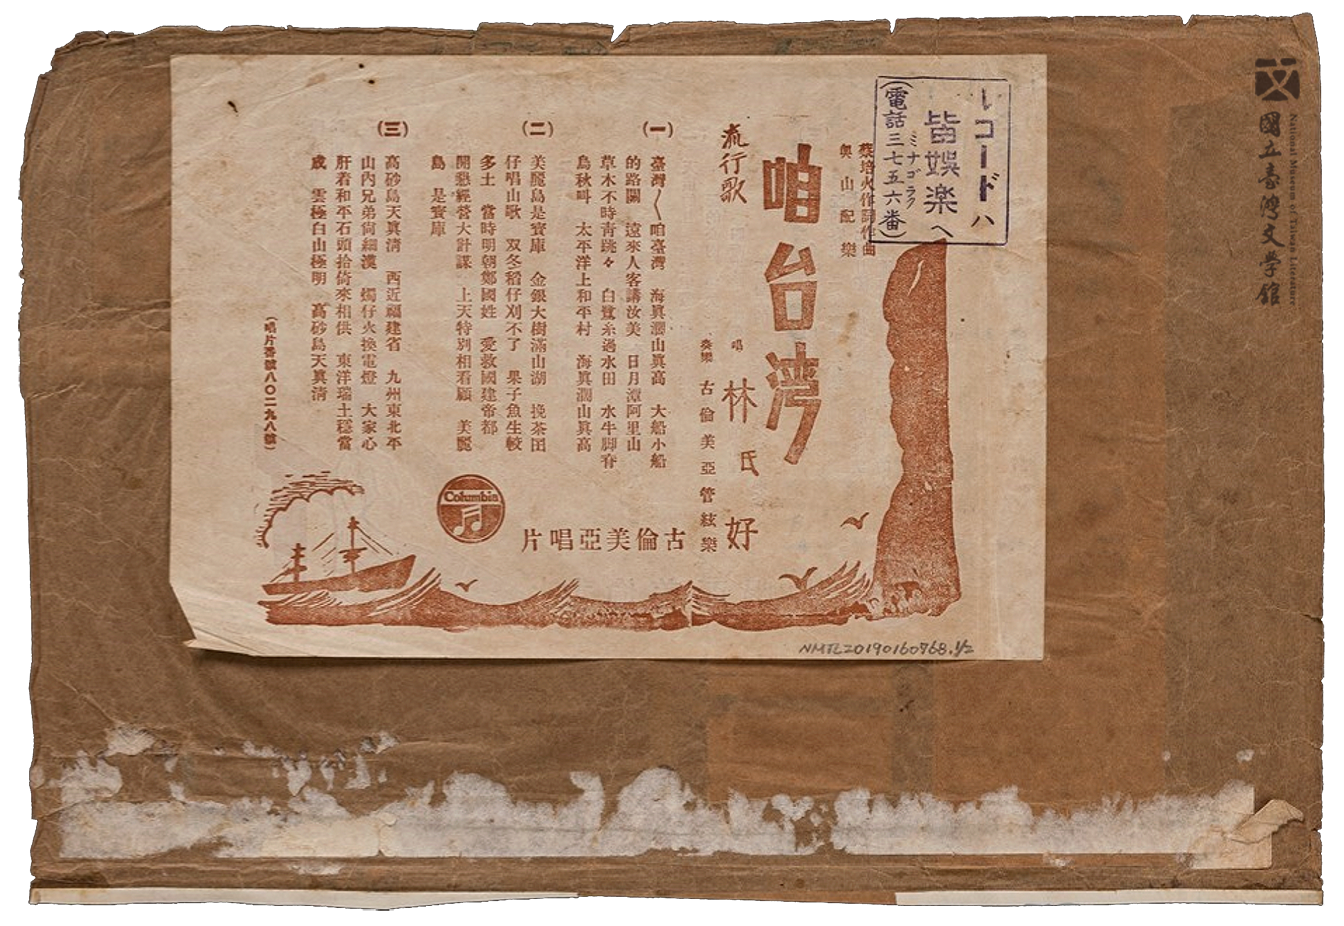 國立臺灣文學館
National Museum of Taiwan Literature
レコードハ
皆娯楽へ
ミナゴラク
(電話三七五六番)
蔡培火作詞作曲
奧山配樂
咱台湾
流行歌
唱 林氏好
奏樂 古倫美亞管絃樂
(一)
臺灣〱咱臺灣 海眞濶山眞高 大船小船
的路關 遠來人客講汝美 日月潭阿里山
草木不時靑跳々 白鷺糸過水田 水牛脚脊
烏秋叫 太平洋上和平村 海眞濶山眞高
(二)
美麗島是寶庫 金銀大樹滿山湖 挽茶囝
仔唱山歌 双冬稻仔刈不了 果子魚生較
多土 當時明朝鄭國姓 愛救國建帝都
開懇經營大計謀 上天特別相看顧 美麗
島 是寶庫
(三)
高砂島天眞淸 西近福建省 九州東北平
山內兄弟尙細漢 燭仔火換電燈 大家心
肝着和平石頭拾倚來相供 東洋瑞士穩當
成 雲極白山極明 高砂島天眞淸
(唱片番號八〇二九八號)
古倫美亞唱片
Columbia
NMTL20190160768.1/2